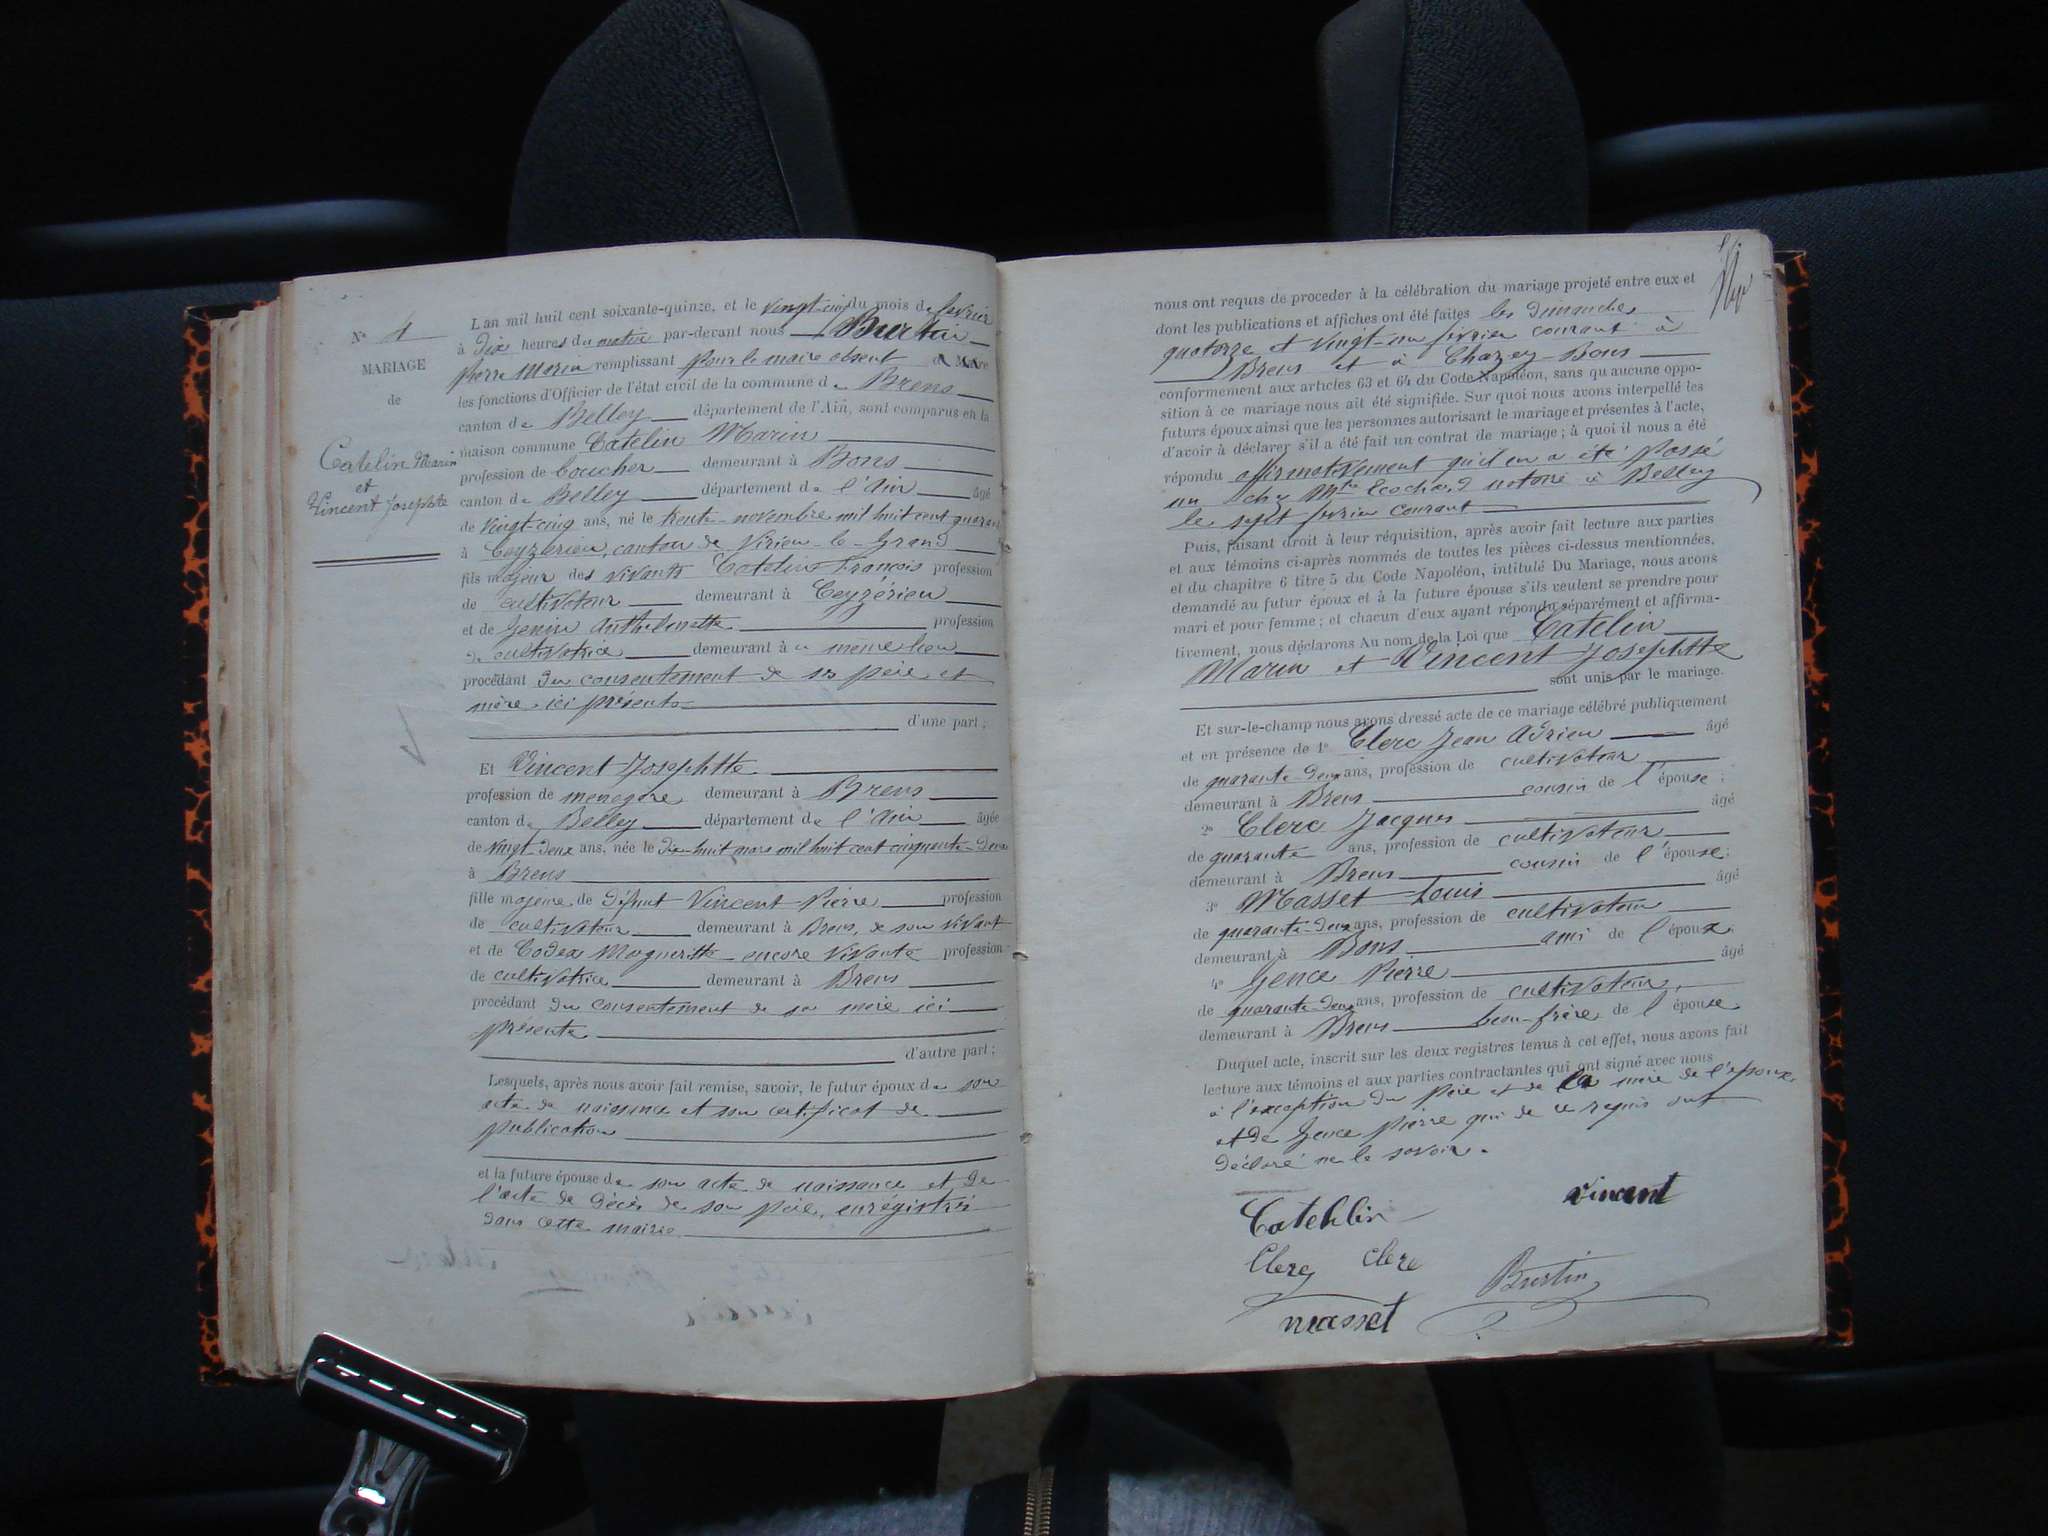 N° 4
MARIAGE
de
Catelin Marin
et
Vincent Josephtte
L'an mil huit cent soixante-quinze, et le vingt-cinq du mois de février
à dix heures du matin par-devant nous Burtin
pierre Marin remplissant pour le maire absent
les fonctions d'Officier de l'état civil de la commune de Brens
canton de Belley département de l'Ain, sont comparus en la
maison commune Catelin Marin
profession de boucher demeurant à Bons
canton de Belley département de l'Ain âgé
de vingt cinq ans, né le trente novembre mil huit cent quarante
à Ceyzérieu, canton de Virieu-le-Grand
fils majeur des vivants Catelin François profession
de cultivateur demeurant à Ceyzérieu
et de Jenin Anthelmette profession
de cultivatrice demeurant à u même lieu
procédant du consentement de ses père et
mère ici présents
d'une part;
Et Vincent Josephtte
profession de menagère demeurant à Brens
canton de Belley département de l'Ain âgée
de vingt-deux ans, née le dix-huit mars mil huit cent cinquante-deux
à Brens
fille majeure de défunt Vincent Pierre profession
de cultivateur demeurant à Brens, de son vivant
et de Codex Marguerite encore vivante profession
de cultivatrice demeurant à Brens
procédant du consentement de sa mère ici
présente
d'autre part;
Lesquels, après nous avoir fait remise, savoir, le futur époux de son
acte de naissance et son certificat de
publication
et la future épouse de son acte de naissance et de
l'acte de décès de son père, enrégistré
dans cette mairie
nous ont requis de proceder à la célébration du mariage projeté entre eux et
dont les publications et affiches ont été faites les dimanches
quatorze et vingt-un février courant à
Brens et à Chazey-Bons
conformement aux articles 63 et 64 du Code Napoléon, sans qu'aucune oppo-
sition à ce mariage nous ait été signifiée. Sur quoi nous avons interpellé les
futurs époux ainsi que les personnes autorisant le mariage et présentes à l'acte,
d'avoir à déclarer s'il a été fait un contrat de mariage; à quoi il nous a été
répondu affirmativement qu'il en a été passé
un chez Mtre notaire à Belley
le sept février courant
Puis, faisant droit à leur réquisition, après avoir fait lecture aux parties
et aux témoins ci-après nommés de toutes les pièces ci-dessus mentionnées,
et du chapitre 6 titre 5 du Code Napoléon, intitulé Du Mariage, nous avons
demandé au futur époux et à la future épouse s'ils veulent se prendre pour
mari et pour femme; et chacun d'eux ayant répondu séparément et affirma-
tivement, nous déclarons Au nom de la Loi que Catelin
Marin et Vincent Josephtte
sont unis par le mariage.
Et sur-le-champ nous avons dressé acte de ce mariage célébré publiquement
et en présence de 1° Clerc Jean Adrien âgé
de quarante-deux ans, profession de cultivateur
demeurant à Brens cousin de l'épouse;
2° Clerc Jacques âgé
de quarante ans, profession de cultivateur
demeurant à Brens cousin de l'épouse;
3° Masset Louis âgé
de quarante-deux ans, profession de cultivateur
demeurant à Bons ami de l'époux;
4° Gence Pierre âgé
de quarante-deux ans, profession de cultivateur,
demeurant à Brens beau-frère de l'épouse
Duquel acte, inscrit sur les deux registres tenus à cet effet, nous avons fait
lecture aux témoins et aux parties contractantes qui ont signé avec nous
à l'exception du père et de la mère de l'époux
et de Gence pierre qui de ce requis ont
déclaré ne le savoir.
Catehlin
vincent
Clerc
Clerc
Burtin
masset